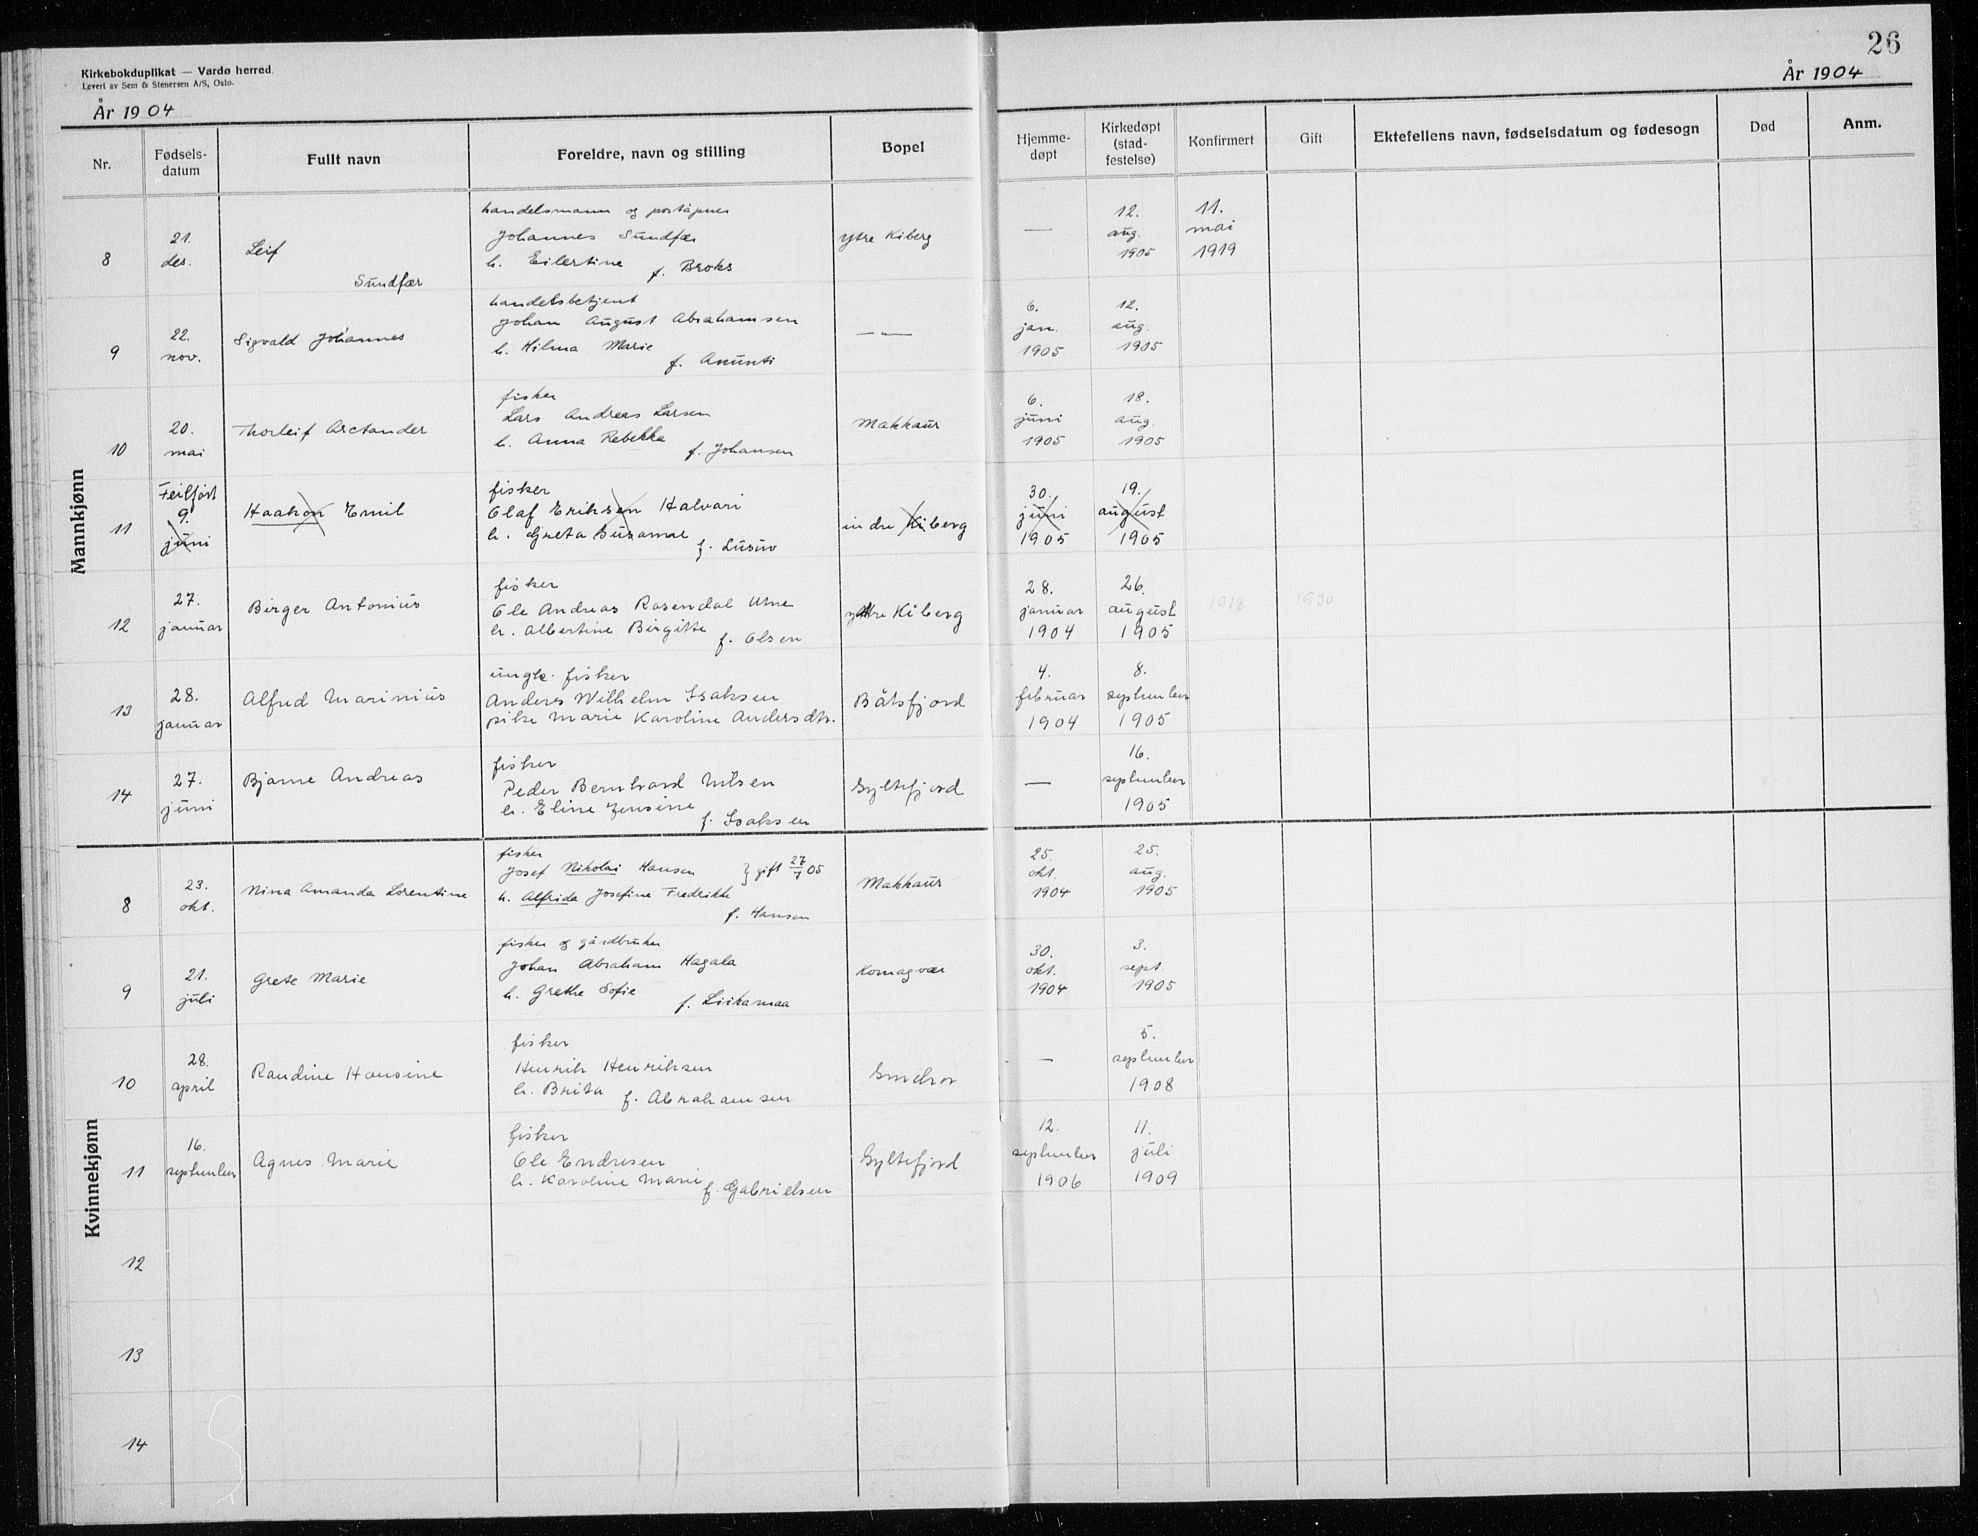 26
Kirkebokduplikat — Vardø herred.
Levert av Sem & Stenersen A/S, Oslo.
År 1904
År 1904
Nr.
Fødsels-
datum
Fullt navn
Foreldre, navn og stilling
Bopel
Hjemme-
døpt
Kirkedøpt
(stad-
festelse)
Konfirmert
Gift
Ektefellens navn, fødselsdatum og fødesogn
Død
Anm.
Mannkjønn
8
21.
des.
Leif
Sundfær
handelsmann og poståpner
Johannes Sundfær
h. Eilertine f. Broks
ytre Kiberg
—
12.
aug.
1905
11.
mai
1919
9
22.
nov.
Sigvald Johannes
handelsbetjent
Johan August Abrahamsen
h. Hilma Marie
f. Anunti
— " —
6.
jan.
1905
12.
aug.
1905
10
20.
mai
Thorleif Arctander
fisker
Lars Andreas Larsen
h. Anna Rebekka
f. Johansen
Makkaur
6.
juni
1905
18.
aug.
1905
11
Feilført
9.
juni
Haakon Emil
fisker
Olaf Eriksen Halvari
h. Greta Susanne
f.
indre Kiberg
30.
juni
1905
19.
august
1905
12
27.
januar
Birger Antonius
fisker
Ole Andreas Rosendal Utne
h. Albertine Birgitte
f. Olsen
ytre Kiberg
28.
januar
1904
26.
august
1905
1918
1930
13
28.
januar
Alfred Marinius
ungk. fisker
Anders Wilhelm Isaksen
pike Marie Karoline Andersdtr.
Båtsfjord
4.
februar
1904
8.
september
1905
14
27.
juni
Bjarne Andreas
fisker
Peder Bernhard Nilsen
h. Eline Jensine
f. Isaksen
Syltefjord
—
16.
september
1905
Kvinnekjønn
8
23.
okt.
Nina Amanda Lorentine
fisker
Josef Nikolai Hansen } gift 27/7 05
h. Alfrida Josefine Fredrikke
f. Hansen
Makkaur
25.
okt.
1904
25.
aug.
1905
9
21.
juli
Grete Marie
fisker og gårdbruker
Johan Abraham Hagala
h. Grethe Sofie
f. Liikamaa
Komagvær
30.
okt.
1904
3.
sept.
1905
10
28.
april
Randine Hansine
fisker
Henrik Henriksen
h. Brita f. Abrahamsen
—
5.
september
1908
11
16.
september
Agnes Marie
fisker
Ole Endresen
h. Karoline Marie
f. Gabrielsen
Syltefjord
12.
september
1906
11.
juli
1909
12
13
14